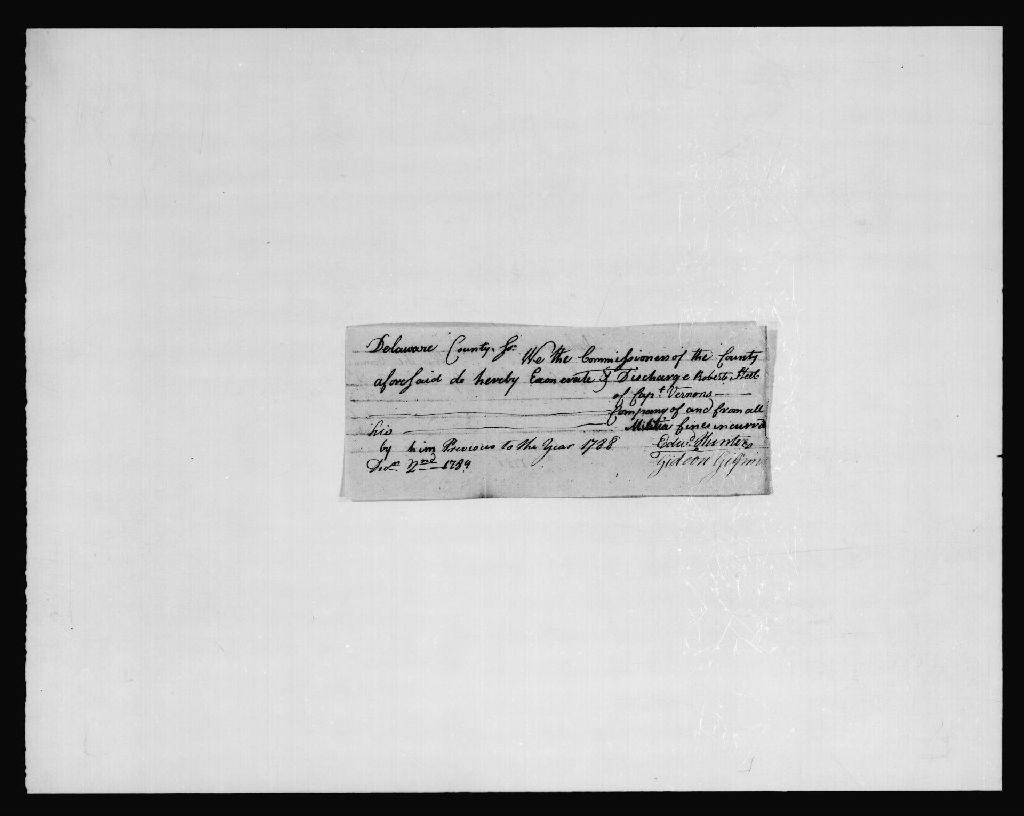 Delaware County, Ss. We the Commissioners of the County
aforesaid do hereby Exonerate & Discharge Robert
of Capt. Vernons
Company of and from all
his Militia fines incurred
by him Previous to the Year 1788
Decr. 2nd 1789 Edwd. Hunter
Gideon Gilpin